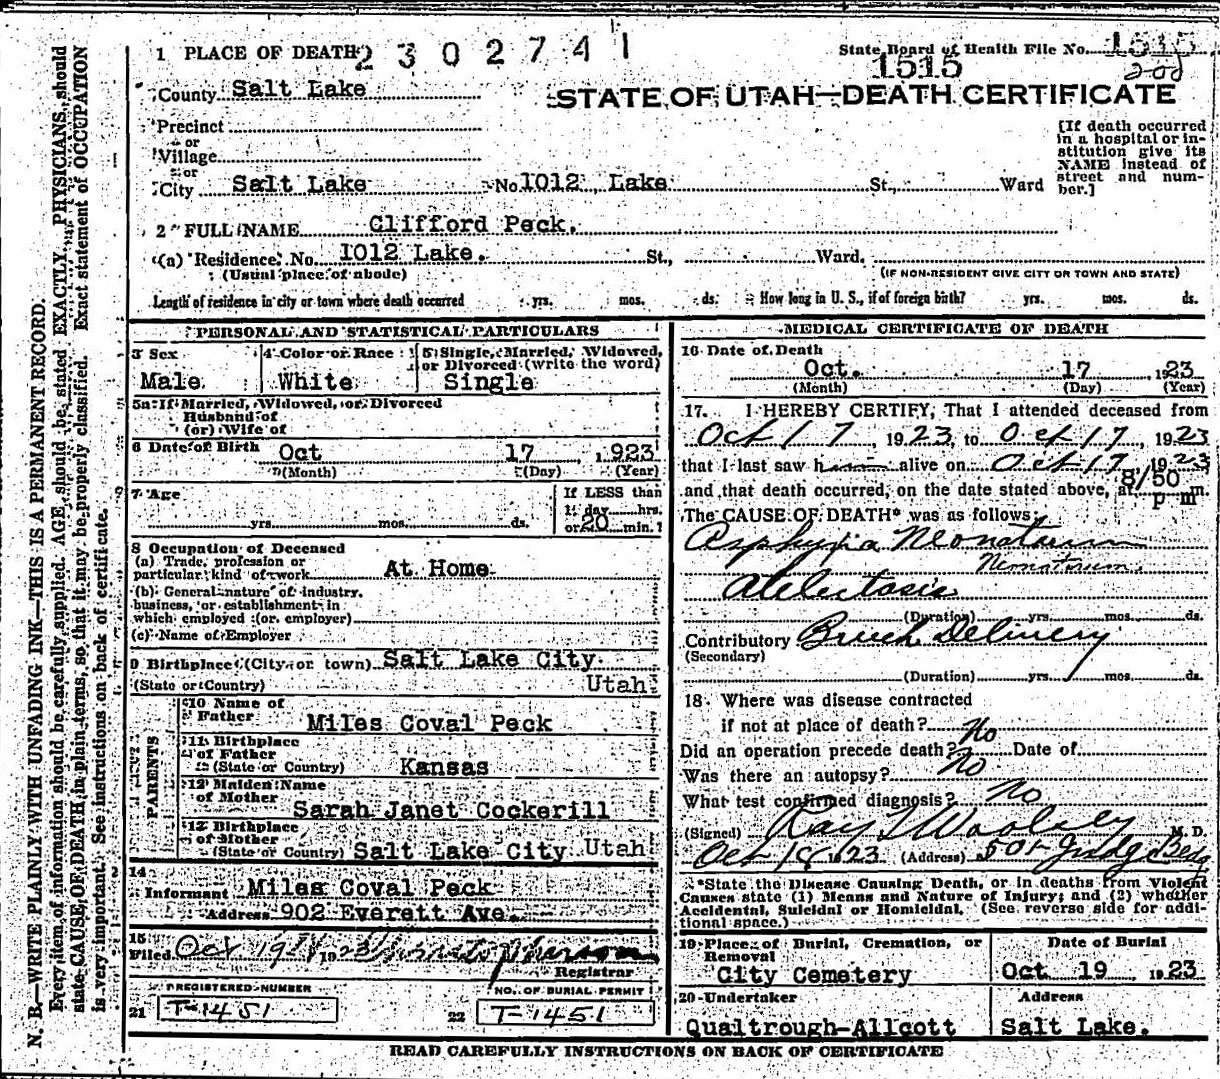 1 PLACE OF DEATH 2302741
State Board of Health File No. 1515
1515
STATE OF UTAH—DEATH CERTIFICATE
County Salt Lake
Precinct
or
Village
or
City Salt Lake No. 1012 Lake St., Ward
[If death occurred in a hospital or in-
stitution give its
NAME instead of
street and num-
ber.]
2 FULL NAME Clifford Peck.
(a) Residence. No. 1012 Lake. St., Ward.
(Usual place of abode) (IF NON-RESIDENT GIVE CITY OR TOWN AND STATE)
Length of residence in city or town where death occurred yrs. mos. ds. How long in U. S., if of foreign birth? yrs. mos. ds.
PERSONAL AND STATISTICAL PARTICULARS
3 Sex 4 Color or Race 5 Single, Married, Widowed,
or Divorced (write the word)
Male White Single
5a If Married, Widowed, or Divorced
Husband of
(or) Wife of
6 Date of Birth Oct 17 1923
(Month) (Day) (Year)
7 Age If LESS than
1 day hrs.
yrs. mos. ds. or 20 min.?
8 Occupation of Deceased
(a) Trade, profession or
particular kind of work At Home
(b) General nature of industry,
business, or establishment in
which employed (or employer)
(c) Name of Employer
9 Birthplace (City or town) Salt Lake City
(State or Country) Utah
PARENTS
10 Name of
Father Miles Coval Peck
11 Birthplace
of Father
(State or Country) Kansas
12 Maiden Name
of Mother
Sarah Janet Cockerill
13 Birthplace
of Mother
(State or Country) Salt Lake City Utah
14
Informant Miles Coval Peck
Address 902 Everett Ave.
15
Filed Oct 19 1923
Registrar
REGISTERED NUMBER NO. OF BURIAL PERMIT
21 T-1451 22 T-1451
MEDICAL CERTIFICATE OF DEATH
16 Date of Death
Oct. 17 1923
(Month) (Day) (Year)
17. I HEREBY CERTIFY, That I attended deceased from
Oct 17, 1923, to Oct 17, 1923
that I last saw him alive on Oct 17, 1923
and that death occurred, on the date stated above, at 8/50 p m.
The CAUSE OF DEATH* was as follows:
Asphyxia Neonatorum
Neonatorum
Atelectasis
(Duration) yrs. mos. ds.
Contributory Breech Delivery
(Secondary)
(Duration) yrs. mos. ds.
18 Where was disease contracted
if not at place of death?
Did an operation precede death? No Date of
Was there an autopsy? No
What test confirmed diagnosis? No
(Signed) Ray T Woolsey M. D.
Oct 18 1923 (Address) 501 Judge Bldg
*State the Disease Causing Death, or in deaths from Violent
Causes state (1) Means and Nature of Injury; and (2) whether
Accidental, Suicidal or Homicidal. (See reverse side for addi-
tional space.)
19 Place of Burial, Cremation, or Date of Burial
Removal
City Cemetery Oct 19 1923
20 Undertaker Address
Qualtrough-Allcott Salt Lake.
READ CAREFULLY INSTRUCTIONS ON BACK OF CERTIFICATE
N. B.—WRITE PLAINLY WITH UNFADING INK—THIS IS A PERMANENT RECORD.
Every item of information should be carefully supplied. AGE should be stated EXACTLY. PHYSICIANS should
state CAUSE OF DEATH in plain terms, so that it may be properly classified. Exact statement of OCCUPATION
is very important. See instructions on back of certificate.